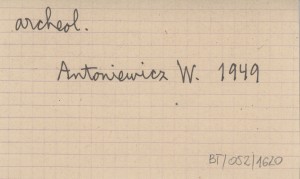 archeol.
Antoniewicz W. 1949
BT/052/1620